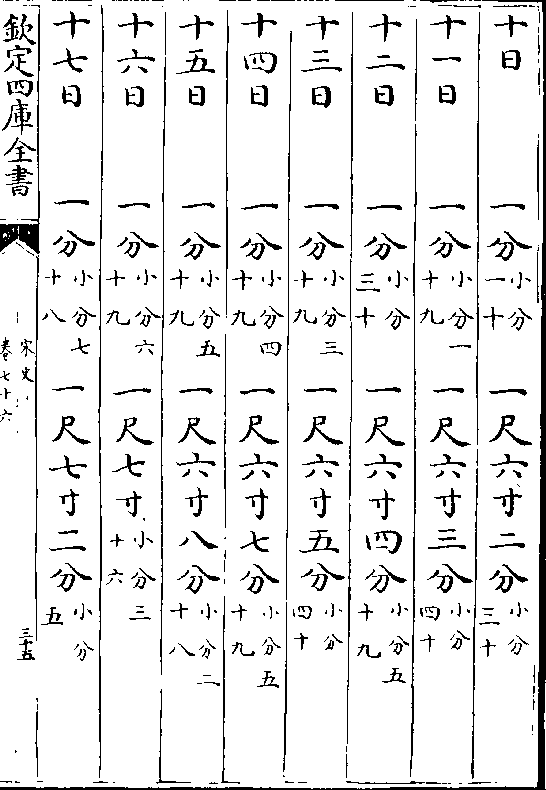 十日 一分小分一十 一尺六寸二分小分三十
十一日 一分小分一十九 一尺六寸三分小分四十
十二日 一分小分三十 一尺六寸四分小分五十九
十三日 一分小分三十九 一尺六寸五分小分四十
十四日 一分小分四十九 一尺六寸七分小分五十九
十五日 一分小分五十九 一尺六寸八分小分二十八
十六日 一分小分六十九 一尺七寸小分三十六
十七日 一分小分七十八 一尺七寸二分小分五
欽定四庫全書
宋史
卷七十六
三十五